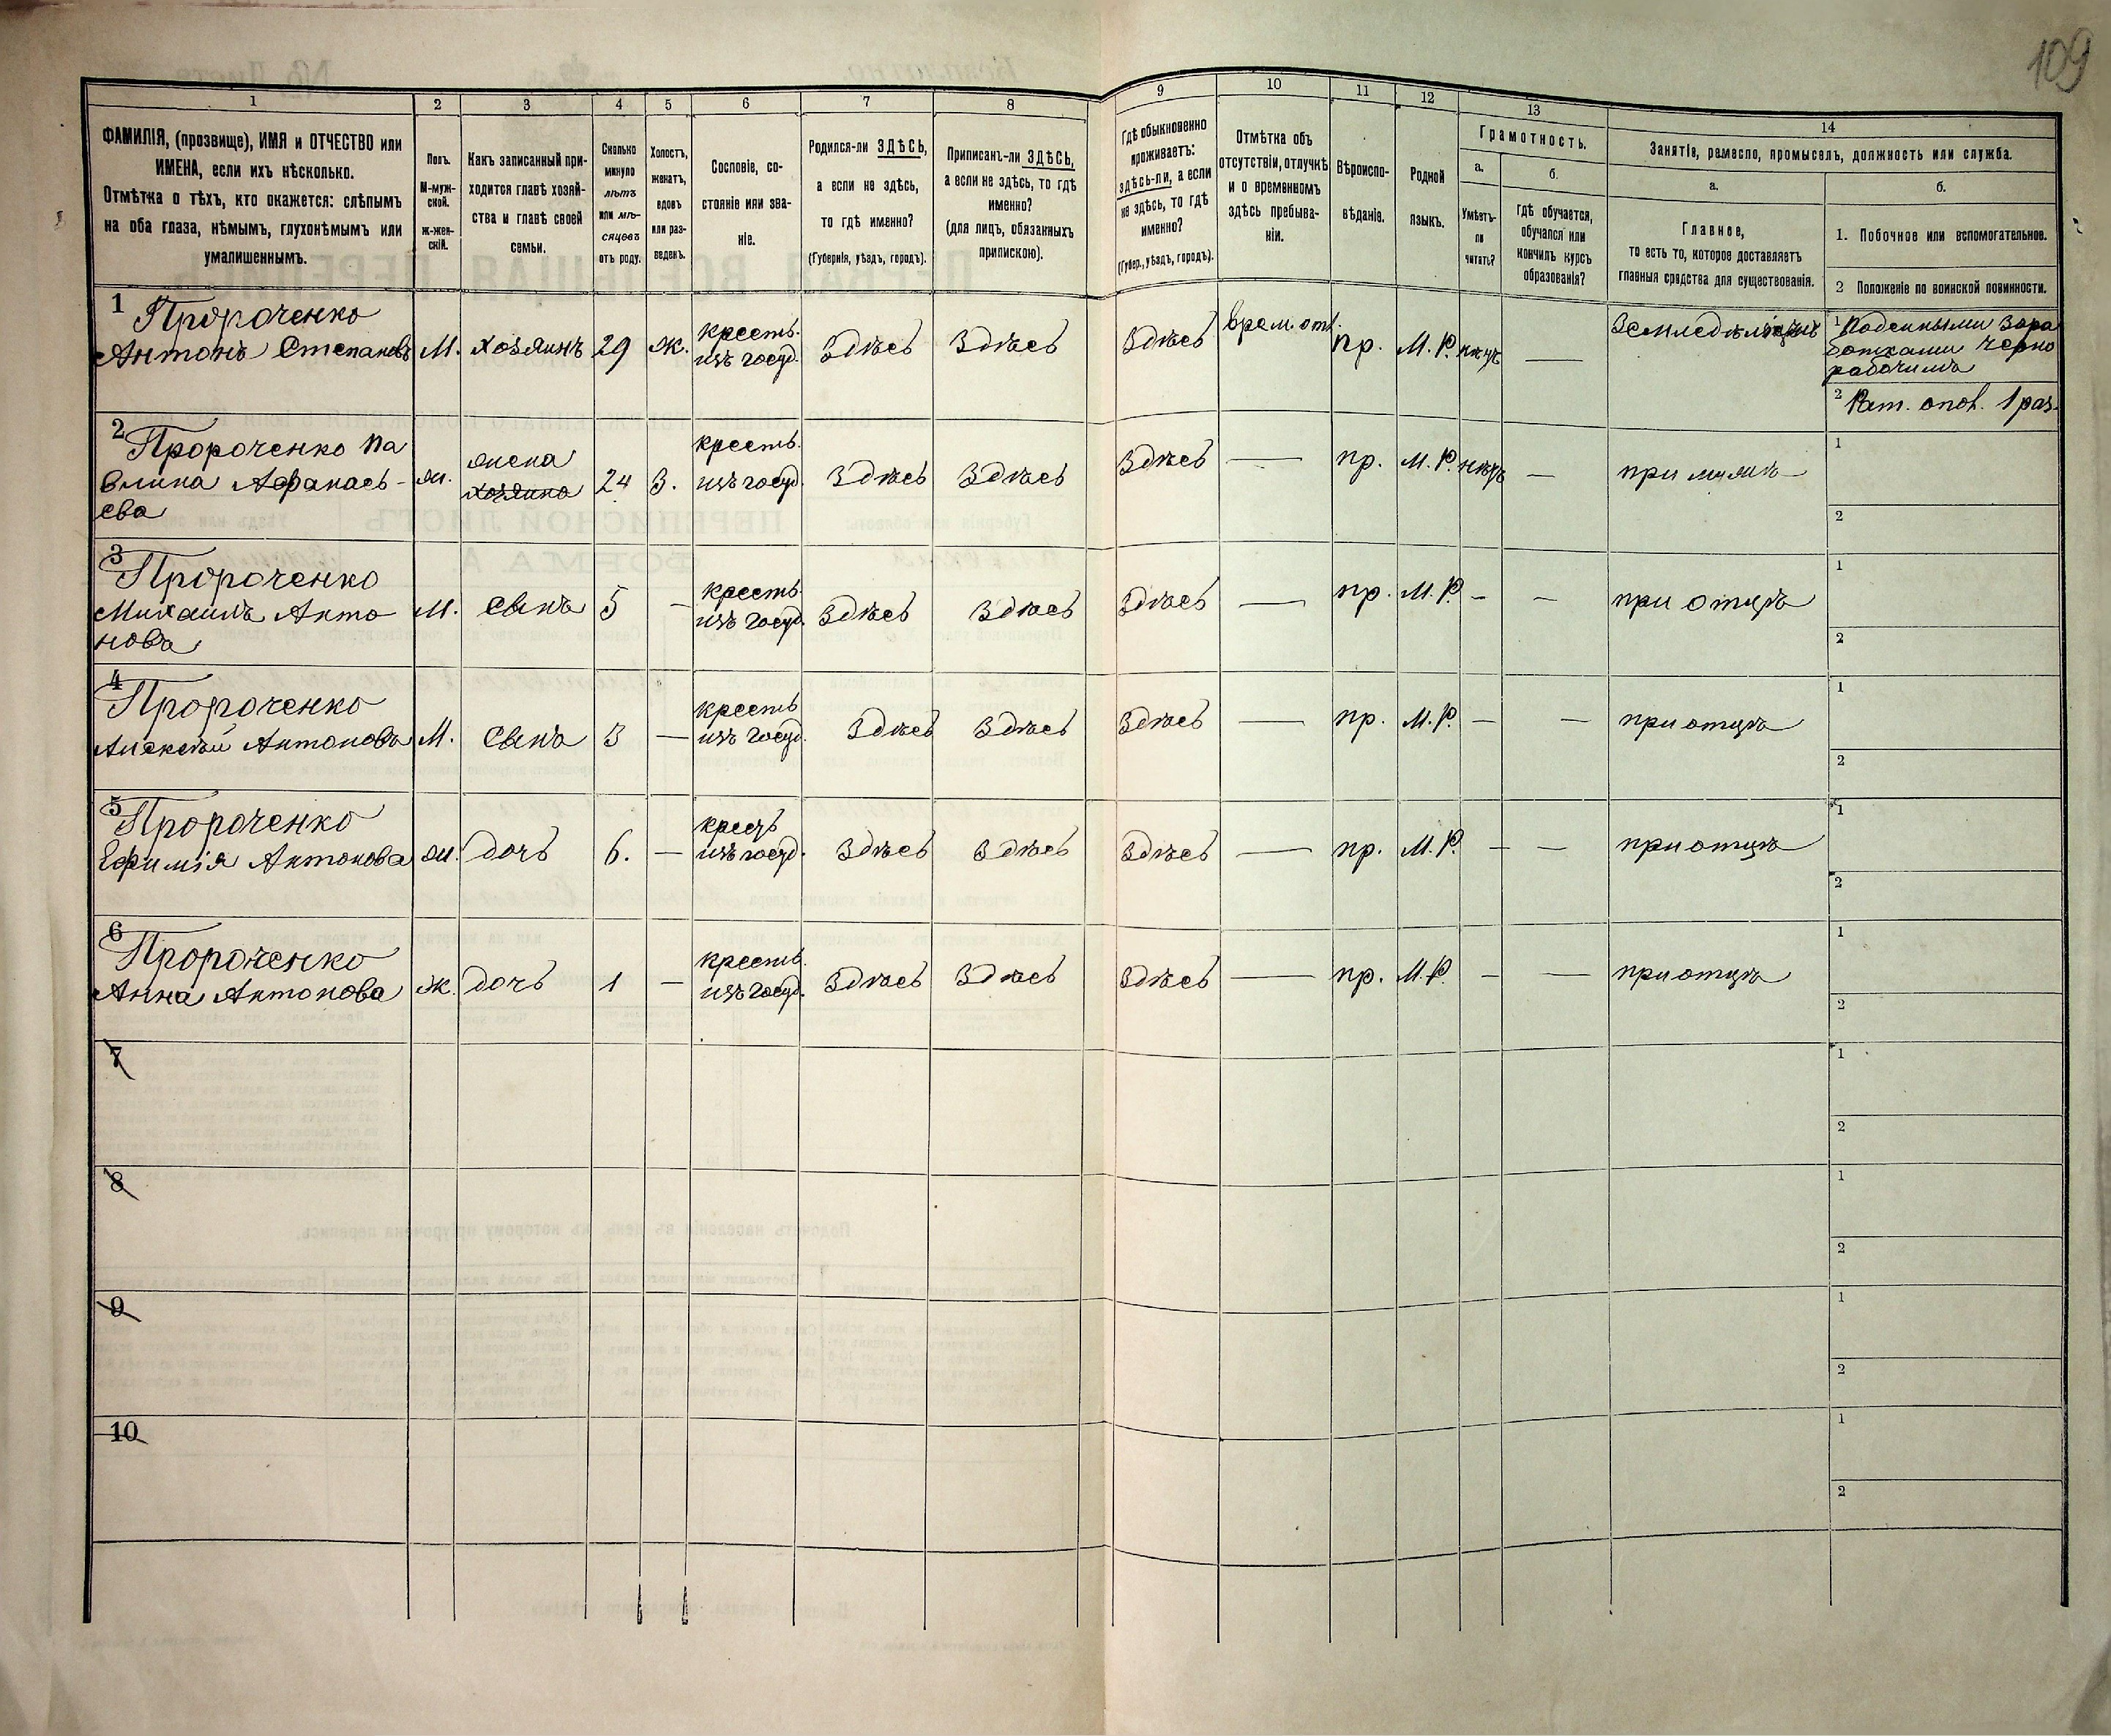 109
1
2
3
4
5
6
7
8
9
10
11
12
13
14
ФАМИЛІЯ, (прозвище), ИМЯ и ОТЧЕСТВО или
ИМЕНА, если ихъ нѣсколько.
Отмѣтка о тѣхъ, кто окажется: слѣпымъ
на оба глаза, нѣмымъ, глухонѣмымъ или
умалишеннымъ.
Полъ.
М-муж-
ской.
ж-жен-
скій.
Какъ записанный при-
ходится главѣ хозяй-
ства и главѣ своей
семьи.
Сколько
минуло
лѣтъ
или мѣ-
сяцевъ
отъ роду.
Холостъ,
женатъ,
вдовъ
или раз-
веденъ.
Сословіе, со-
стояніе или зва-
ніе.
Родился-ли ЗДѢСЬ,
а если не здѣсь,
то гдѣ именно?
(Губернія, уѣздъ, городъ).
Приписанъ-ли ЗДѢСЬ,
а если не здѣсь, то гдѣ
именно?
(для лицъ, обязанныхъ
припискою).
Гдѣ обыкновенно
проживаетъ:
здѣсь-ли, а если
не здѣсь, то гдѣ
именно?
(Губер., уѣздъ, городъ).
Отмѣтка объ
отсутствіи, отлучкѣ
и о временномъ
здѣсь пребыва-
ніи.
Вѣроиспо-
вѣданіе.
Родной
языкъ.
Грамотность.
а.
Умѣетъ-
ли
читать?
б.
гдѣ обучается,
обучался или
кончилъ курсъ
образованія?
Занятіе, ремесло, промыселъ, должность или служба.
а.
Главное,
то есть то, которое доставляетъ
главныя средства для существованія.
б.
1. Побочное или вспомогательное.
2 Положеніе по воинской повинности.
1 Пророченко
Антонъ Степановъ
М.
хозяинъ
29
ж.
крестъ.
изъ госуд.
Здѣсь
Здѣсь
Здѣсь
врем. отл.
пр.
М. Р.
нѣтъ
—
1 Поденными зара
ботками черно
рабочимъ
2 Рат. опол. 1 раз.
2 Пророченко Па
влина Афанась-
ева
ж.
жена
хозяина
24
З.
крестъ.
изъ госуд.
Здѣсь
Здѣсь
Здѣсь
—
пр.
М. Р.
нѣтъ
—
при мужѣ
1
2
3 Пророченко
Михаилъ Анто
новъ
М.
сынъ
5
—
крестъ.
изъ госуд.
Здѣсь
Здѣсь
Здѣсь
—
пр.
М. Р.
—
—
при отцѣ
1
2
4 Пророченко
Алексѣй Антоновъ
М.
сынъ
3
—
крестъ
изъ госуд.
Здѣсь
Здѣсь
Здѣсь
—
пр.
М. Р.
—
—
при отцѣ
1
2
5 Пророченко
Ефимія Антонова
ж.
дочь
6.
—
изъ госуд.
Здѣсь
Здѣсь
Здѣсь
—
пр.
М. Р.
—
—
при отцѣ
1
2
6 Пророченко
Анна Антонова
ж.
дочь
1
—
крестъ.
изъ госуд.
Здѣсь
Здѣсь
Здѣсь
—
пр.
М. Р.
—
—
при отцѣ
1
2
7
1
2
8
1
2
9
1
2
10
1
2